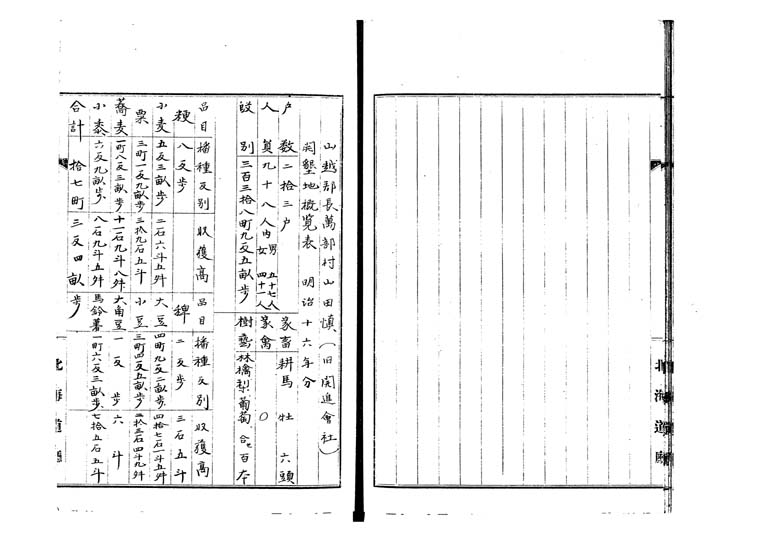 山越郡長萬部村山田慎(旧開進會社)
開墾地概覧表 明治十六年分
戸数 二拾三戸 家畜 耕馬 牡 六頭
人員 九十八人内 男 五十七人 女 四十一人 家禽 〇
段別 三百三拾八町九反五畝歩 樹藝 林檎梨葡萄 合セ百本
品目 播種反別 收獲高 品目 播種反別 收獲高
粳 八反歩 稗 二反歩 三石五斗
小麦 五反三畝歩 二石六斗五舛 大豆 四町九反二畝歩 四拾七石一斗五舛
粟 三町一反九畝歩 三拾九石五斗 小豆 三町四反五畝歩 三拾三石四斗九舛
蕎麦 一町八反三畝歩 十一石九斗八舛 大角豆 一反歩 六斗
小黍 六反九畝歩 八石九斗五舛 馬鈴薯 一町六反三畝歩 七拾五石五斗
合計 拾七町三反四畝歩
北海道廳